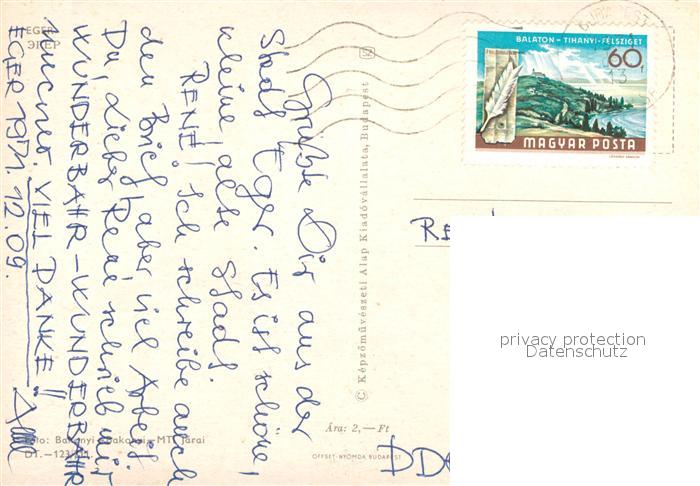 EGER
ЭГЕР
BALATON – TIHANYI-FÉLSZIGET
60f
MAGYAR POSTA
Grüße Dir aus der
Stadt Eger. Es ist schöne,
kleine alte Stadt.
RENÉ! Ich schreibe auch
den Brief, aber viel Arbeit
Du, Lieber René schrieb mir
WUNDERBAHR – WUNDERBAHR
VIEL DANKE!!
EGER 1971. 12. 09.
© Képzőművészeti Alap Kiadóvállalata, Budapest
RE
privacy protection
Datenschutz
Ára: 2,— Ft
Foto: Bakonyi – MTI, Járai
OFFSET-NYOMDA BUDAPEST
DD